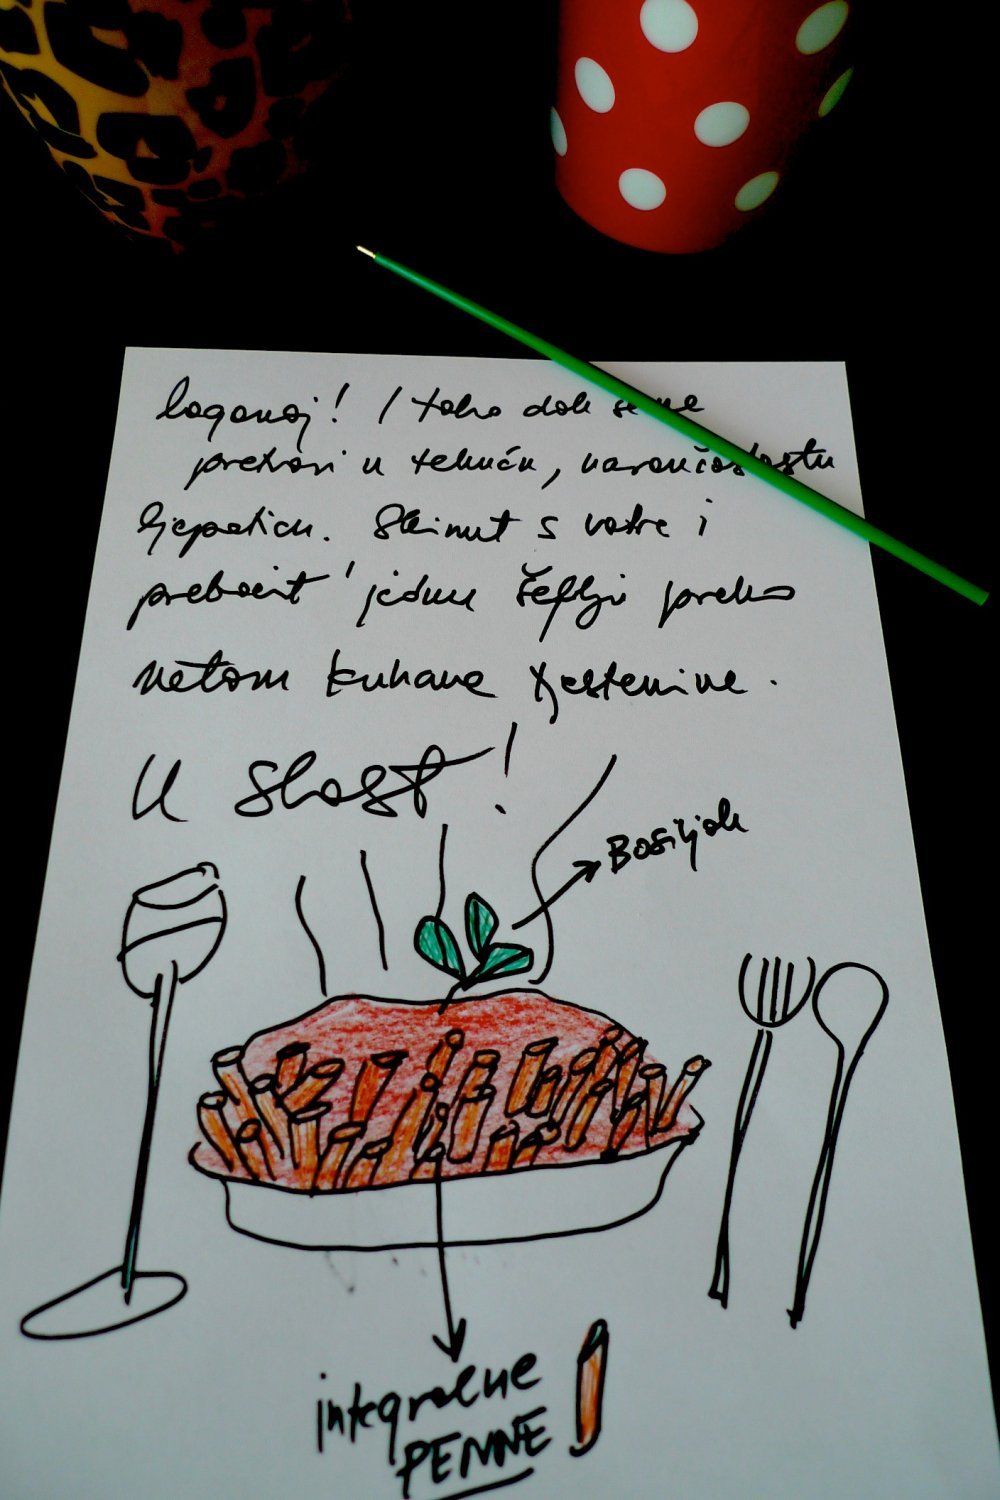 laganoj! I tako dok se ne
pretvori u tekuću, narančastu
ljepoticu. Skinut s vatre i
prebacit jednu šeflji preko
netom kuhane tjestenine.
U slast!
Bosiljak
integralne
PENNE